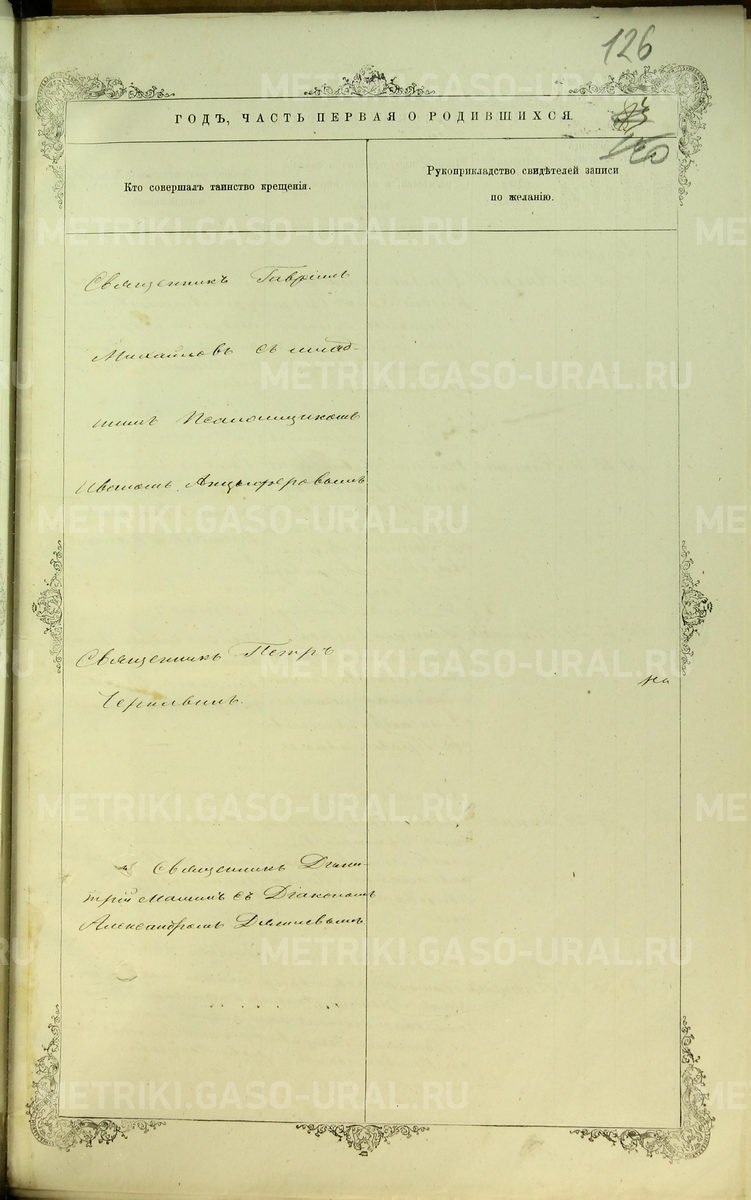 126
ГОДЪ, ЧАСТЬ ПЕРВАЯ О РОДИВШИХСЯ.
Кто совершалъ таинство крещенія.
Рукоприкладство свидѣтелей записи
по желанію.
Священникъ Гавріилъ
Михайловъ съ млад-
шимъ Псаломщикомъ
Иваномъ Анцыферовымъ
Священникъ Петръ
на
Священникъ Дими-
трій Маминъ съ Діакономъ
Александромъ
METRIKI.GASO-URAL.RU